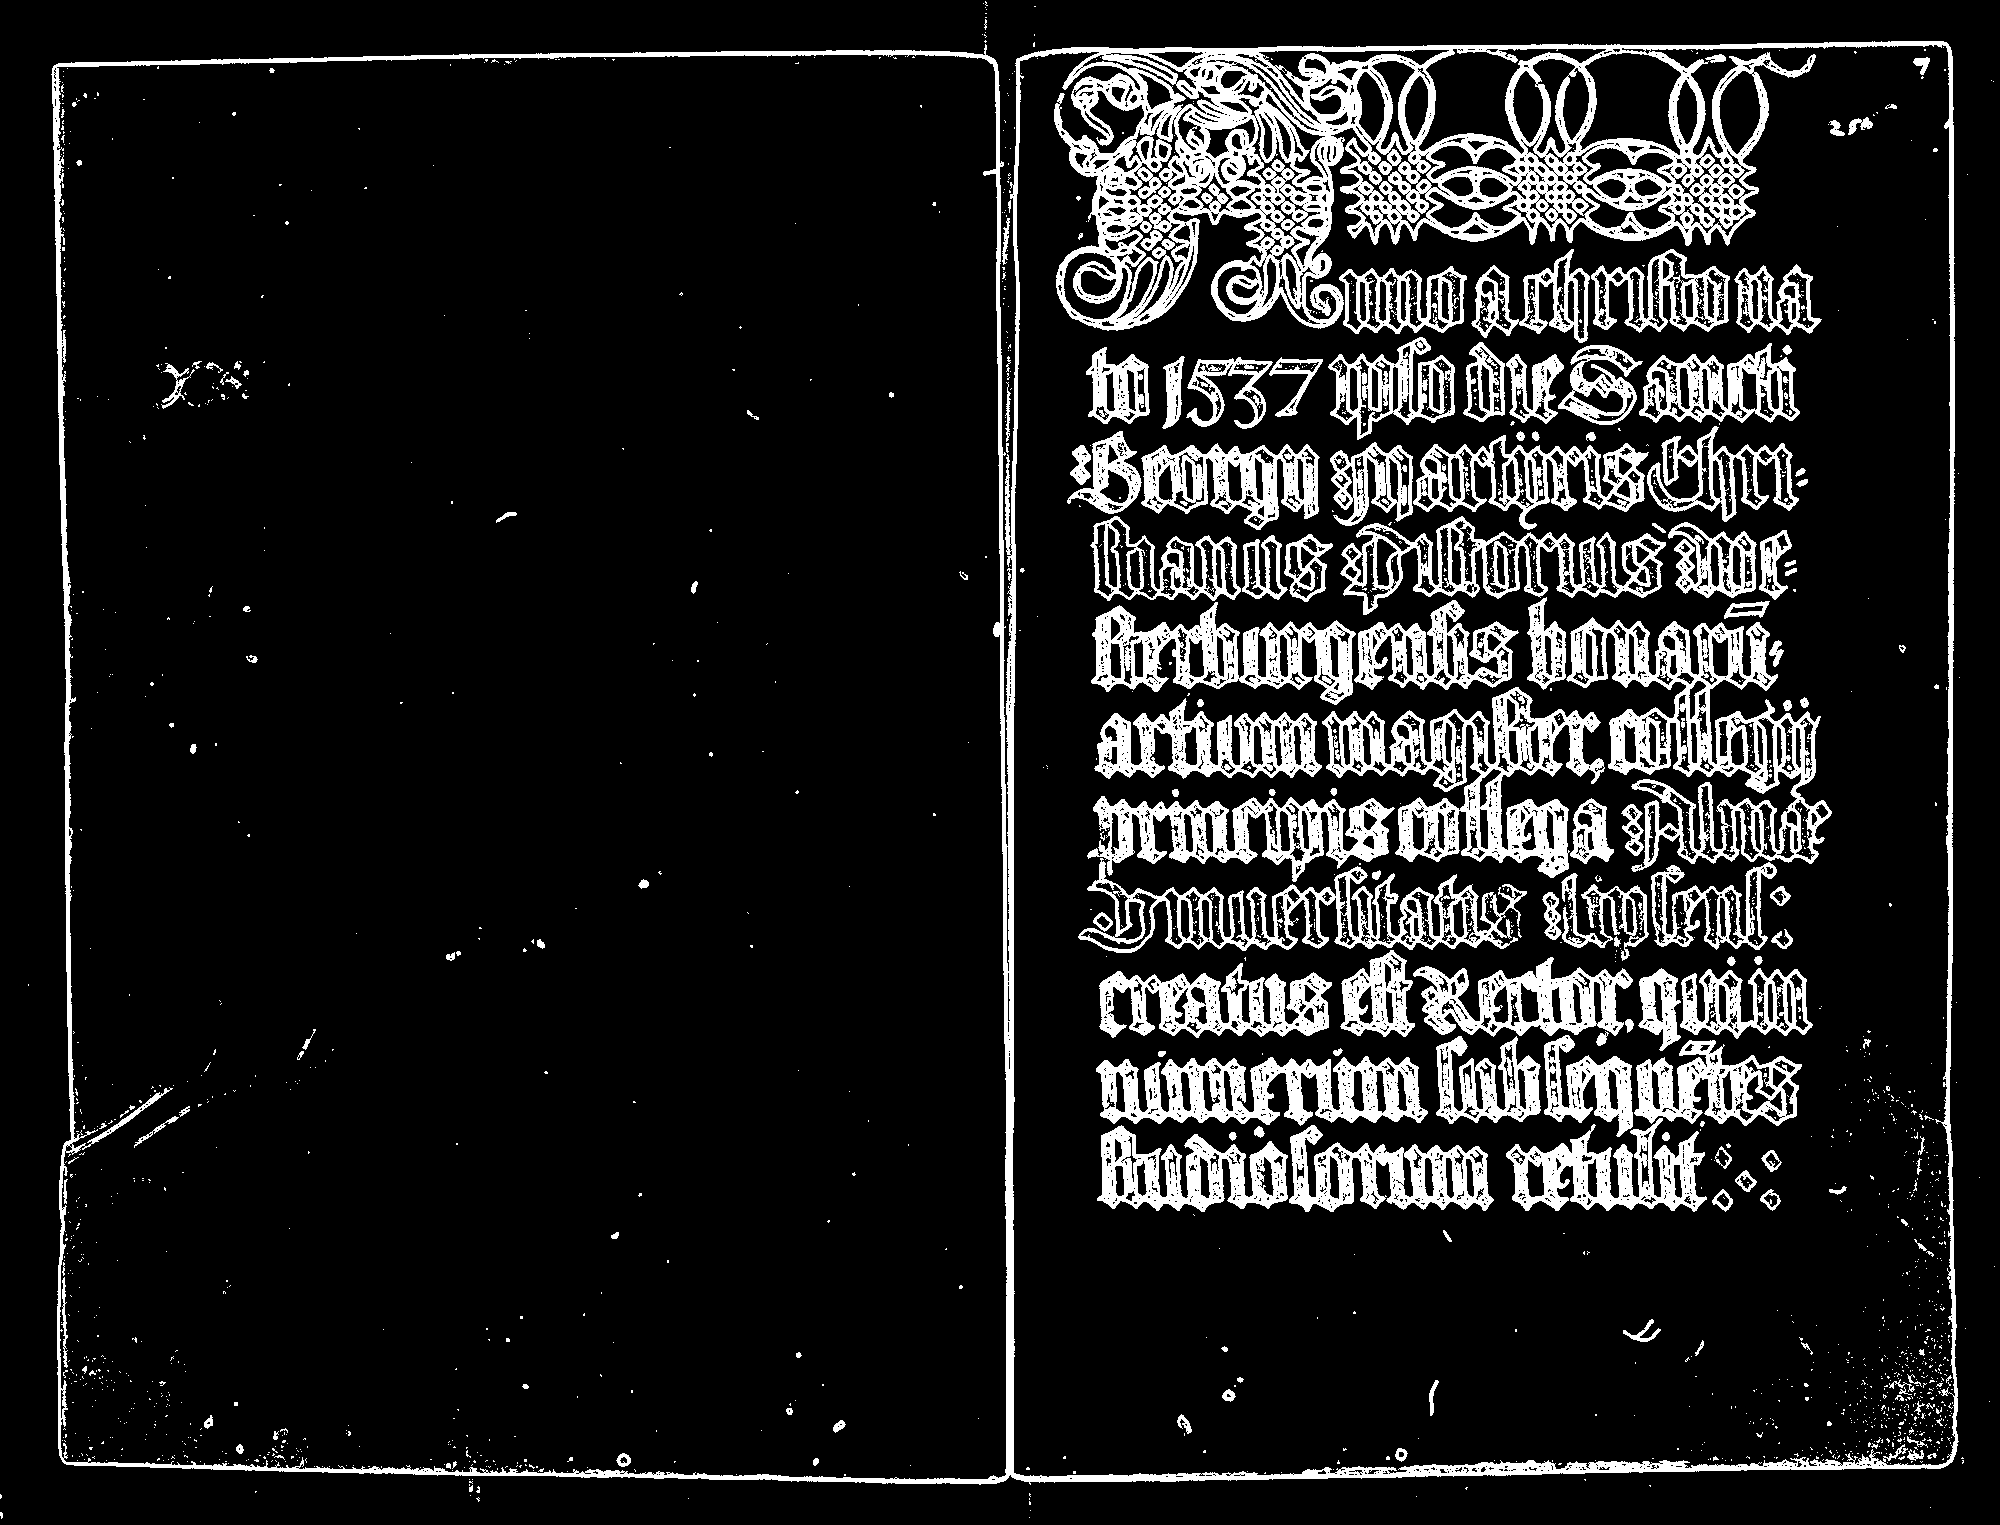 7
Anno a christo na
to 1537 ipso die Sancti
Georgij Martÿris Chri-
stianus Pistorius
sterburgensis bonarū
artium magister, collegij
principis collega Almæ
Vniuersitatis Lipsens:
creatus est Rector, qui in
numerum subsequētes
studiosorum retulit